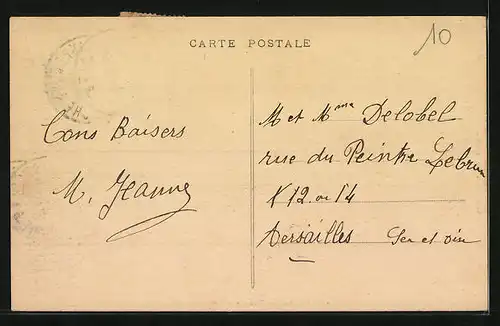 CARTE POSTALE
10
Bons Baisers
M. Jeanne
M et Mme Delobel
rue du Peintre Lebrun
N 12 ou 14
Versailles Sei et Oise